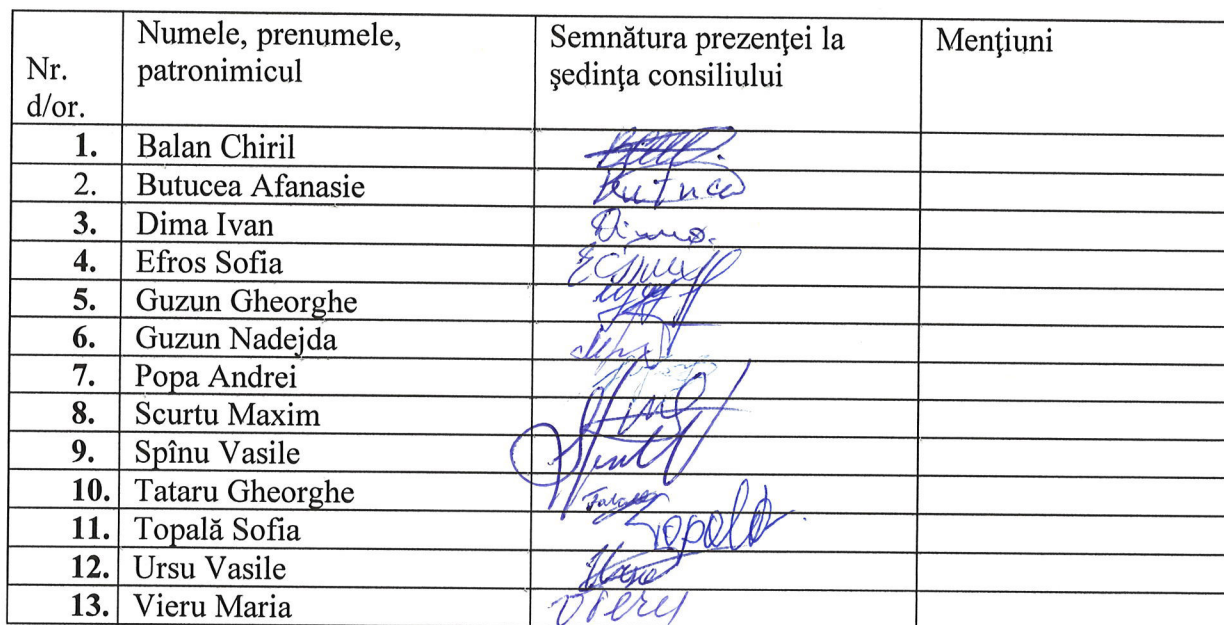 Nr. d/or. Numele, prenumele, patronimicul Semnătura prezenţei la şedinţa consiliului Menţiuni
1. Balan Chiril
2. Butucea Afanasie
3. Dima Ivan
4. Efros Sofia
5. Guzun Gheorghe
6. Guzun Nadejda
7. Popa Andrei
8. Scurtu Maxim
9. Spînu Vasile
10. Tataru Gheorghe
11. Topală Sofia Topală
12. Ursu Vasile
13. Vieru Maria Vieru